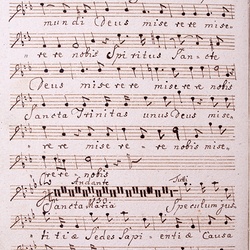 mundi Deus miserere mise=
rere nobis Spiritus Sancte
Deus miserere miserere nobis
Sancta Trinitas unus Deus mise=
rere miserere nobis mise=
rere nobis
Andante Tutti
Sancta Maria Speculum jus=
titiæ Sedes Sapientiæ Causa